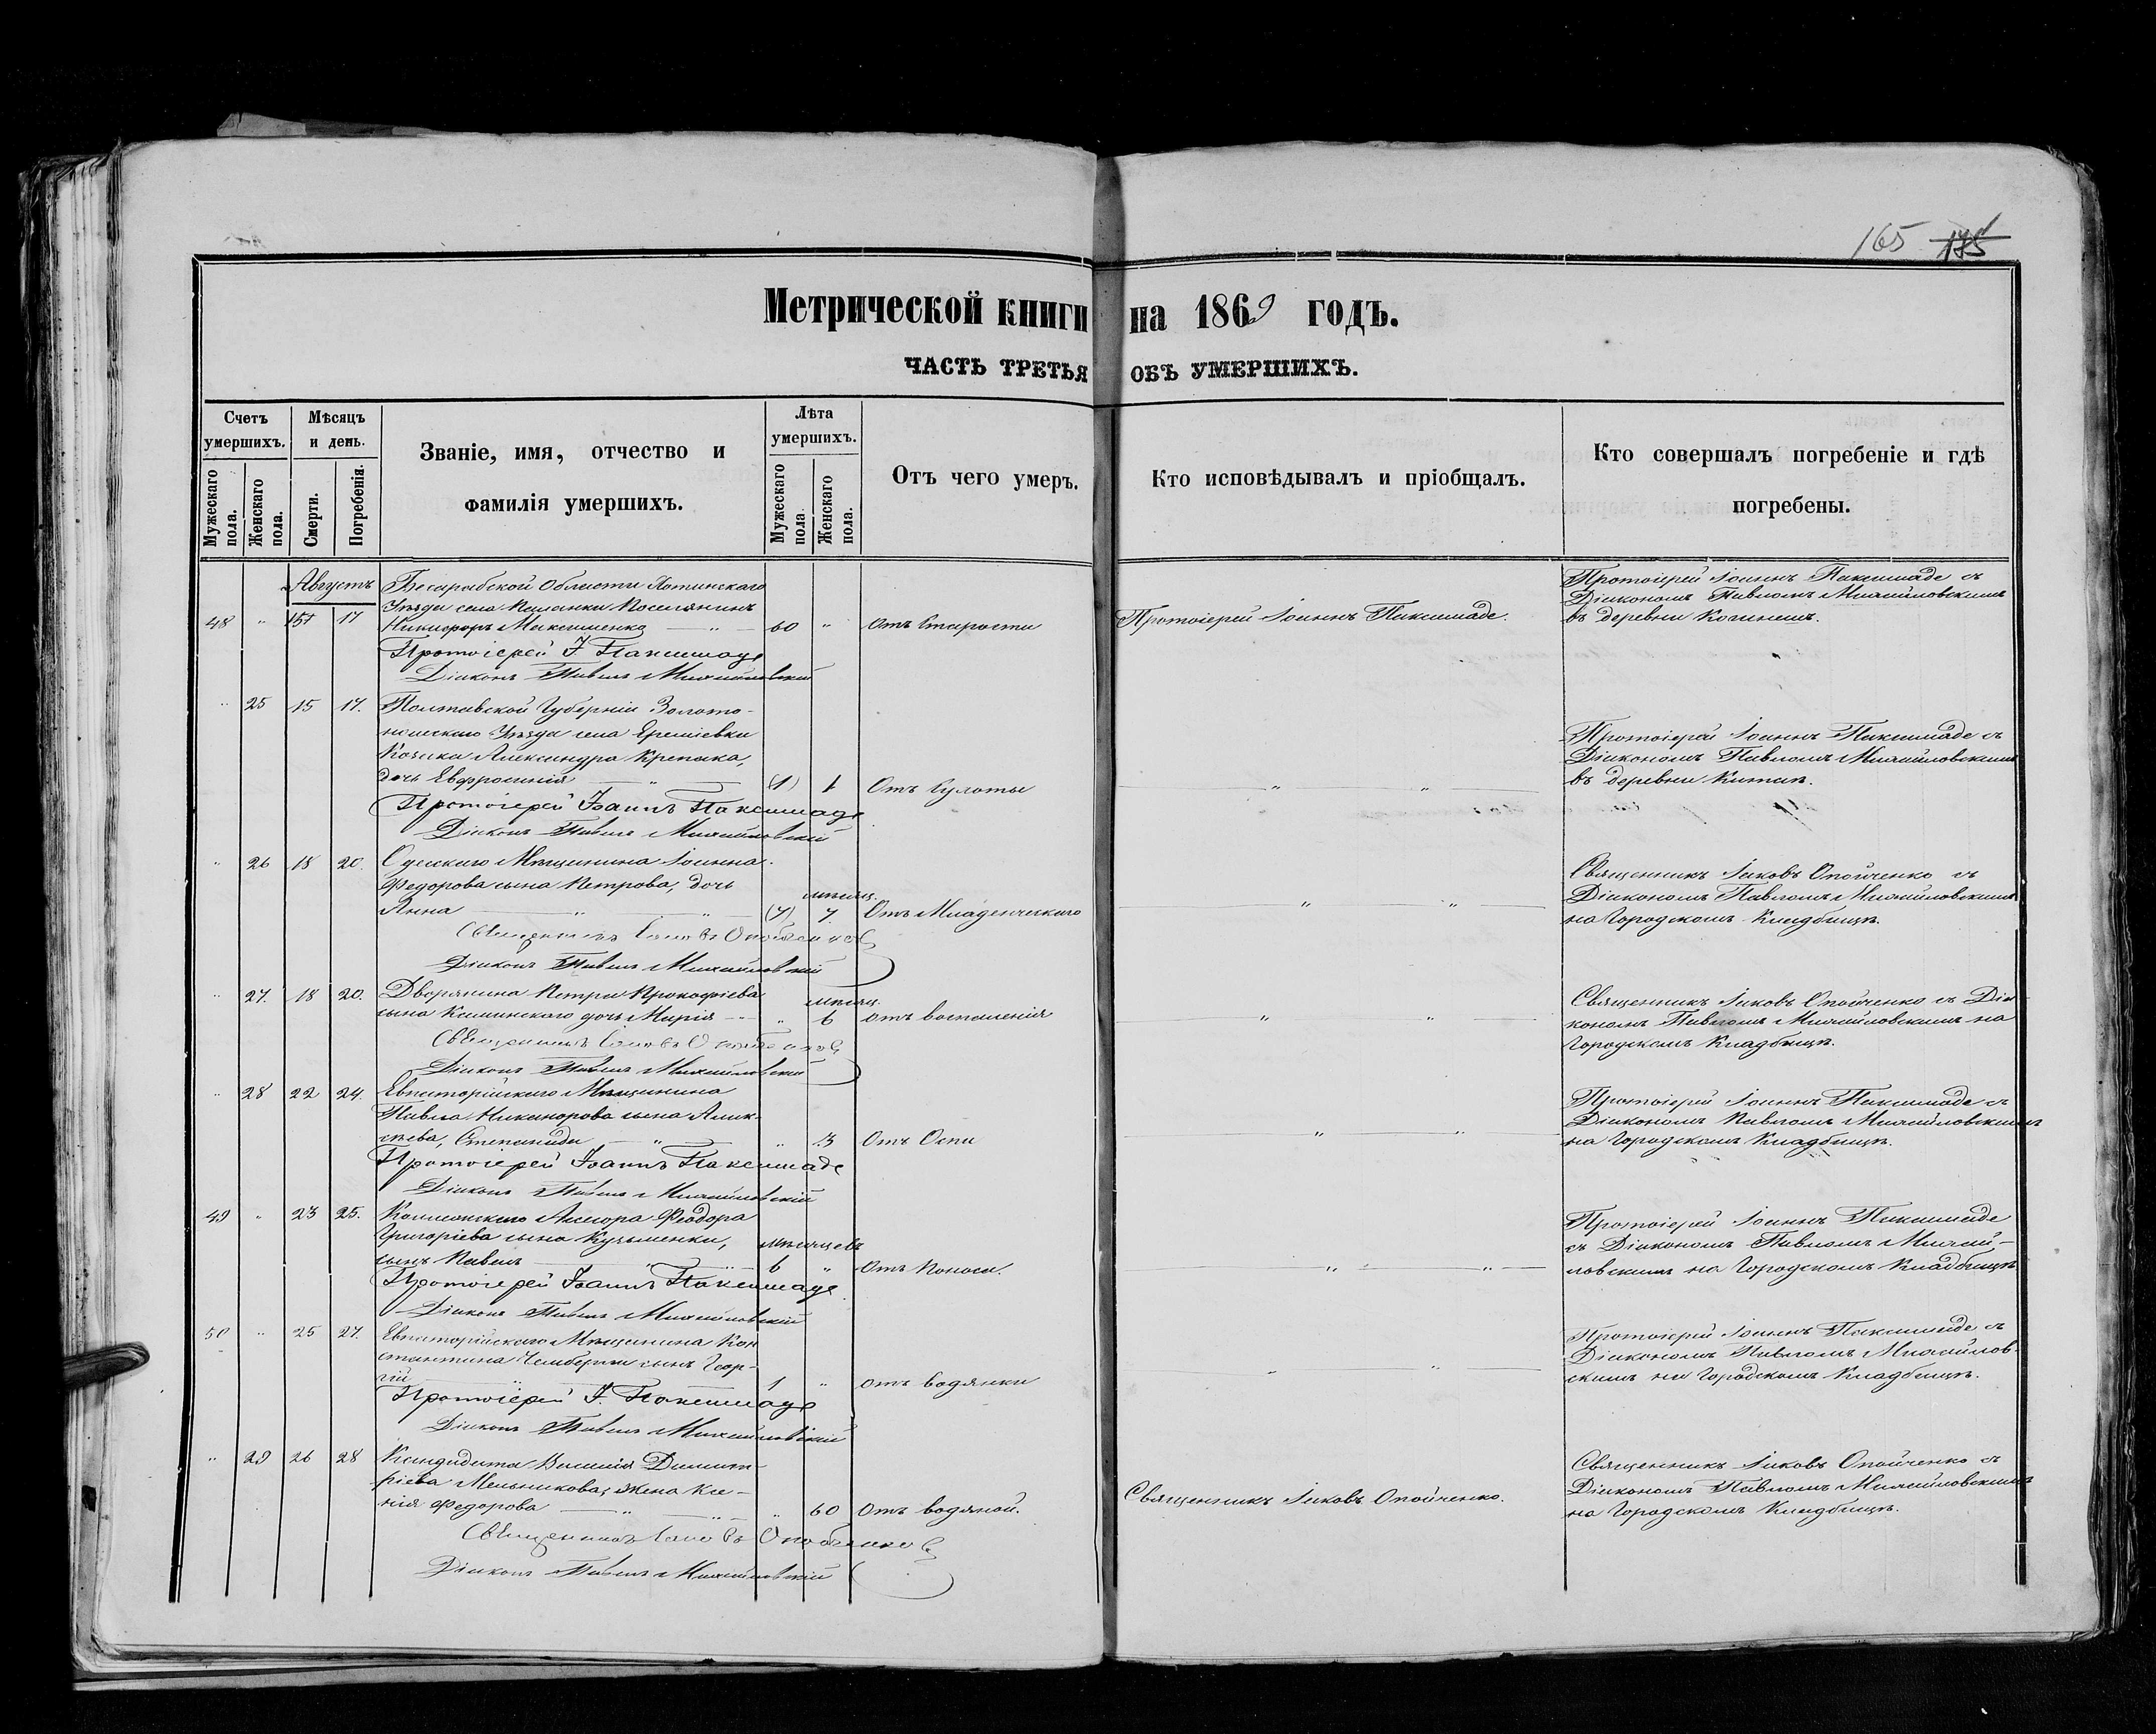 165 175
Метрической книги на 1869 годъ.
ЧАСТЬ ТРЕТЬЯ ОБЪ УМЕРШИХЪ.
Счетъ умершихъ.
Мужескаго пола.
Женскаго пола.
Мѣсяцъ и день.
Смерти.
Погребенія.
Званіе, имя, отчество и
фамилія умершихъ.
Лѣта умершихъ.
Мужескаго пола.
Женскаго пола.
Отъ чего умеръ.
Кто исповѣдывалъ и пріобщалъ.
Кто совершалъ погребеніе и гдѣ
погребены.
Августъ
Бесарабской Области Хотинскаго
Уѣзда села Поселянинъ
48 " 15 17 Никифоръ Максименко " 60 " Отъ Старости
Протоіерей Іоаннъ Паксимаде.
Протоіерей Іоаннъ Паксимаде съ
Діакономъ Павломъ Михайловскимъ
въ деревни
Протоіерей І. Паксимаде
Діаконъ Павелъ Михайловскій
" 25 15 17. Полтавской Губерніи Золото-
ношскаго Уѣзда села Еремѣевки
Козака Александра Крепака,
дочь Евфросинія " (1) 1 Отъ Сухоты
" "
Протоіерей Іоаннъ Паксимаде съ
Діакономъ Павломъ Михайловскимъ
въ деревни
Протоіерей Іоаннъ Паксимаде
Діаконъ Павелъ Михайловскій
" 26 18 20. Одесскаго Мѣщанина Іоанна
Федорова сына Петрова, дочь
мѣсяц.
Анна " " (7) 7. Отъ Младенческаго
" "
Священникъ Іаковъ Опойченко съ
Діакономъ Павломъ Михайловскимъ
на Городскомъ Кладбищѣ.
Священникъ Іаковъ Опойченко
Діаконъ Павелъ Михайловскій
" 27. 18 20. Дворянина Петра Прокофіева
мѣсяц.
сына Каминскаго дочь Марія " 6 отъ воспаленія
" "
Священникъ Іаковъ Опойченко съ Діа-
кономъ Павломъ Михайловскимъ на
Городскомъ Кладбищѣ.
Священникъ Іаковъ Опойченко
Діаконъ Павелъ Михайловскій
" 28 22 24. Евпаторійскаго Мѣщанина
Павла Никанорова сына Алек-
сѣева, Степанида " " 3 Отъ Оспи
" "
Протоіерей Іоаннъ Паксимаде съ
Діакономъ Павломъ Михайловскимъ
на Городскомъ Кладбищѣ.
Протоіерей Іоаннъ Паксимаде
Діаконъ Павелъ Михайловскій
49 " 23 25. Коллежскаго Асесора Феодора
Григоріева сына Кузьменки,
мѣсяцевъ
сынъ Павелъ " " 6 " Отъ Поноса.
" "
Протоіерей Іоаннъ Паксимаде
съ Діакономъ Павломъ Михай-
ловскимъ на Городскомъ Кладбищѣ
Протоіерей Іоаннъ Паксимаде
Діаконъ Павелъ Михайловскій
50 " 25 27. Евпаторійскаго Мѣщанина Кон
стантина сынъ Геор-
гій " 1 " отъ водянки
" "
Протоіерей Іоаннъ Паксимаде съ
Діакономъ Павломъ Михайлов-
скимъ на Городскомъ Кладбищѣ.
Протоіерей І. Паксимаде
Діаконъ Павелъ Михайловскій
" 29 26 28 Кандидата Василія Димит-
ріева Мельникова, жена Ксе-
нія Федорова " " " 60 Отъ водяной.
Священникъ Іаковъ Опойченко.
Священникъ Іаковъ Опойченко съ
Діакономъ Павломъ Михайловскимъ
на Городскомъ Кладбищѣ.
Священникъ Іаковъ Опойченко
Діаконъ Павелъ Михайловскій